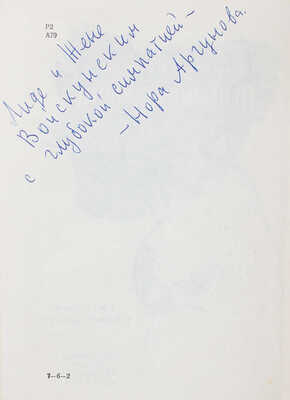 Р2
А79
Лиде и Жене
Войскунским
с глубокой симпатией –
– Нора Аргунова.
7—6—2